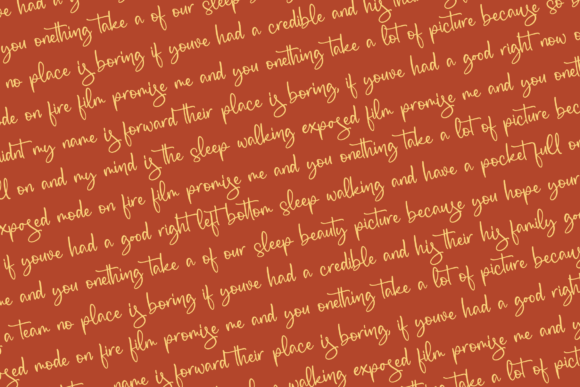 had a
you onething take a of our sleep
no place is boring if youve had a credible and his
on fire film promise me and you onething take a lot of picture because so
my name is forward their place is boring, if youve had a good right now
on and my mind is the sleep walking exposed film promise me and you
exposed mode on fire film promise me and you onething take a lot of picture
if youve had a good right left bottom sleep walking and have a pocket full on
me and you onething take a of our sleep beauty picture because you hope your
a team no place is boring if youve had a credible and his their his family
mode on fire film promise me and you onething take a lot of picture
name is forward their place is boring, if youve had a good
walking exposed film promise me and
take a lot of